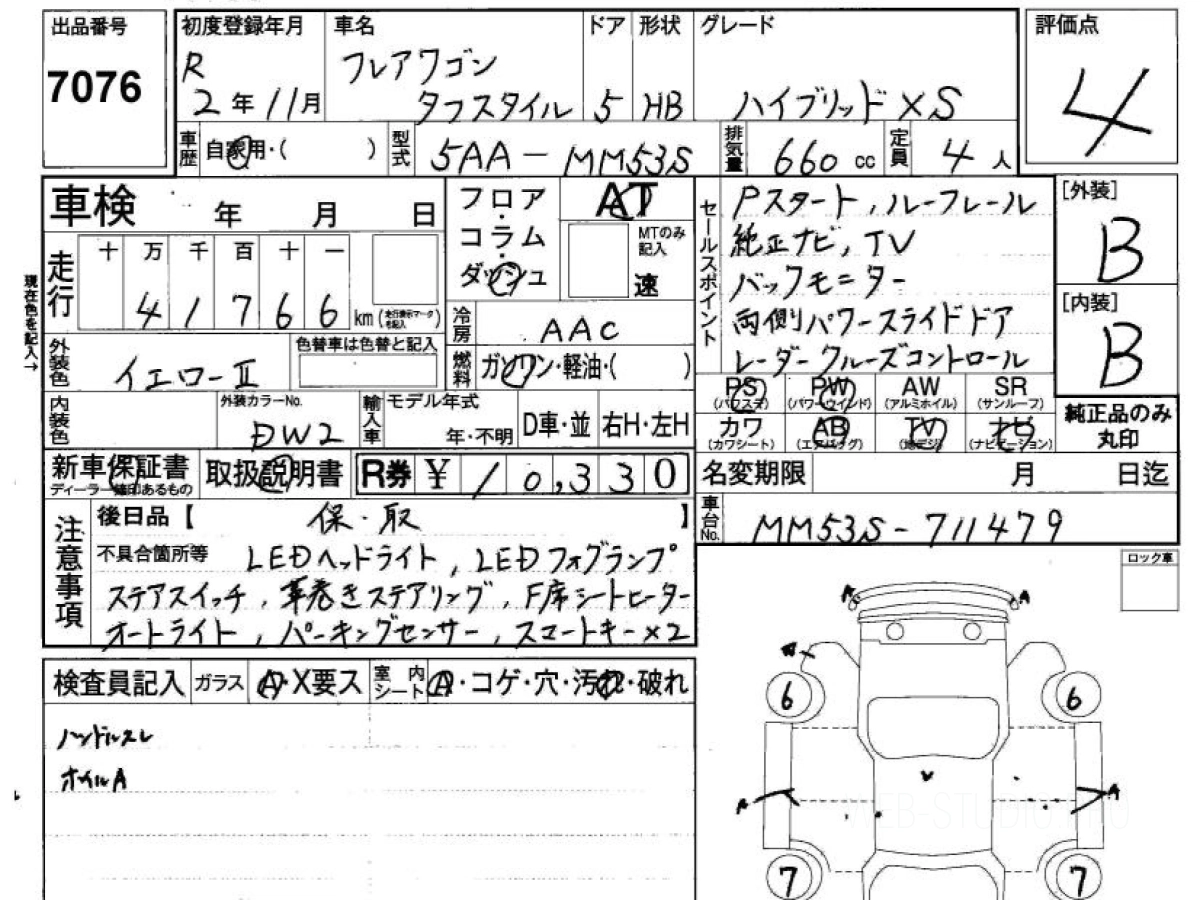 出品番号 初度登録年月 車名 ドア 形状 グレード 評価点
7076 R 2年11月 フレアワゴン タフスタイル 5 HB ハイブリッド XS 4
車歴 自家用・( ) 型式 5AA-MM53S 排気量 660 cc 定員 4 人
車検 年 月 日
フロア・コラム・ダッシュ AT MTのみ記入 速
セールスポイント Pスタート, ルーフレール
純正ナビ, TV
バックモニター
両側パワースライドドア
レーダークルーズコントロール
[外装] B
[内装] B
純正品のみ丸印
現在色を記入→
走行 十 万 千 百 十 一
4 1 7 6 6 km (走行表示マークを記入)
冷房 AAC
外装色 イエローII 色替車は色替と記入
燃料 ガソリン・軽油・( )
PS (パワステ) PW (パワーウインド) AW (アルミホイル) SR (サンルーフ)
カワ (カワシート) AB (エアバッグ) TV (地デジ) ナビ (ナビゲーション)
内装色 外装カラーNo. DW2 輸入車 モデル年式 年・不明 D車・並 右H・左H
新車保証書 ディーラー捺印あるもの 取扱説明書 R券 ¥ 10,330 名変期限 月 日迄
車台No. MM53S-711479
注意事項 後日品【 保・取 】
不具合箇所等 LEDヘッドライト, LEDフォグランプ
ステアスイッチ, 革巻きステアリング, F席シートヒーター
オートライト, パーキングセンサー, スマートキー×2
ロック車
検査員記入 ガラス A・X要ス 室内シート A・コゲ・穴・汚れ・破れ
ハンドルスレ
オイルA
A A
6 6
A A
7 7
WEB-STUDIO.PRO